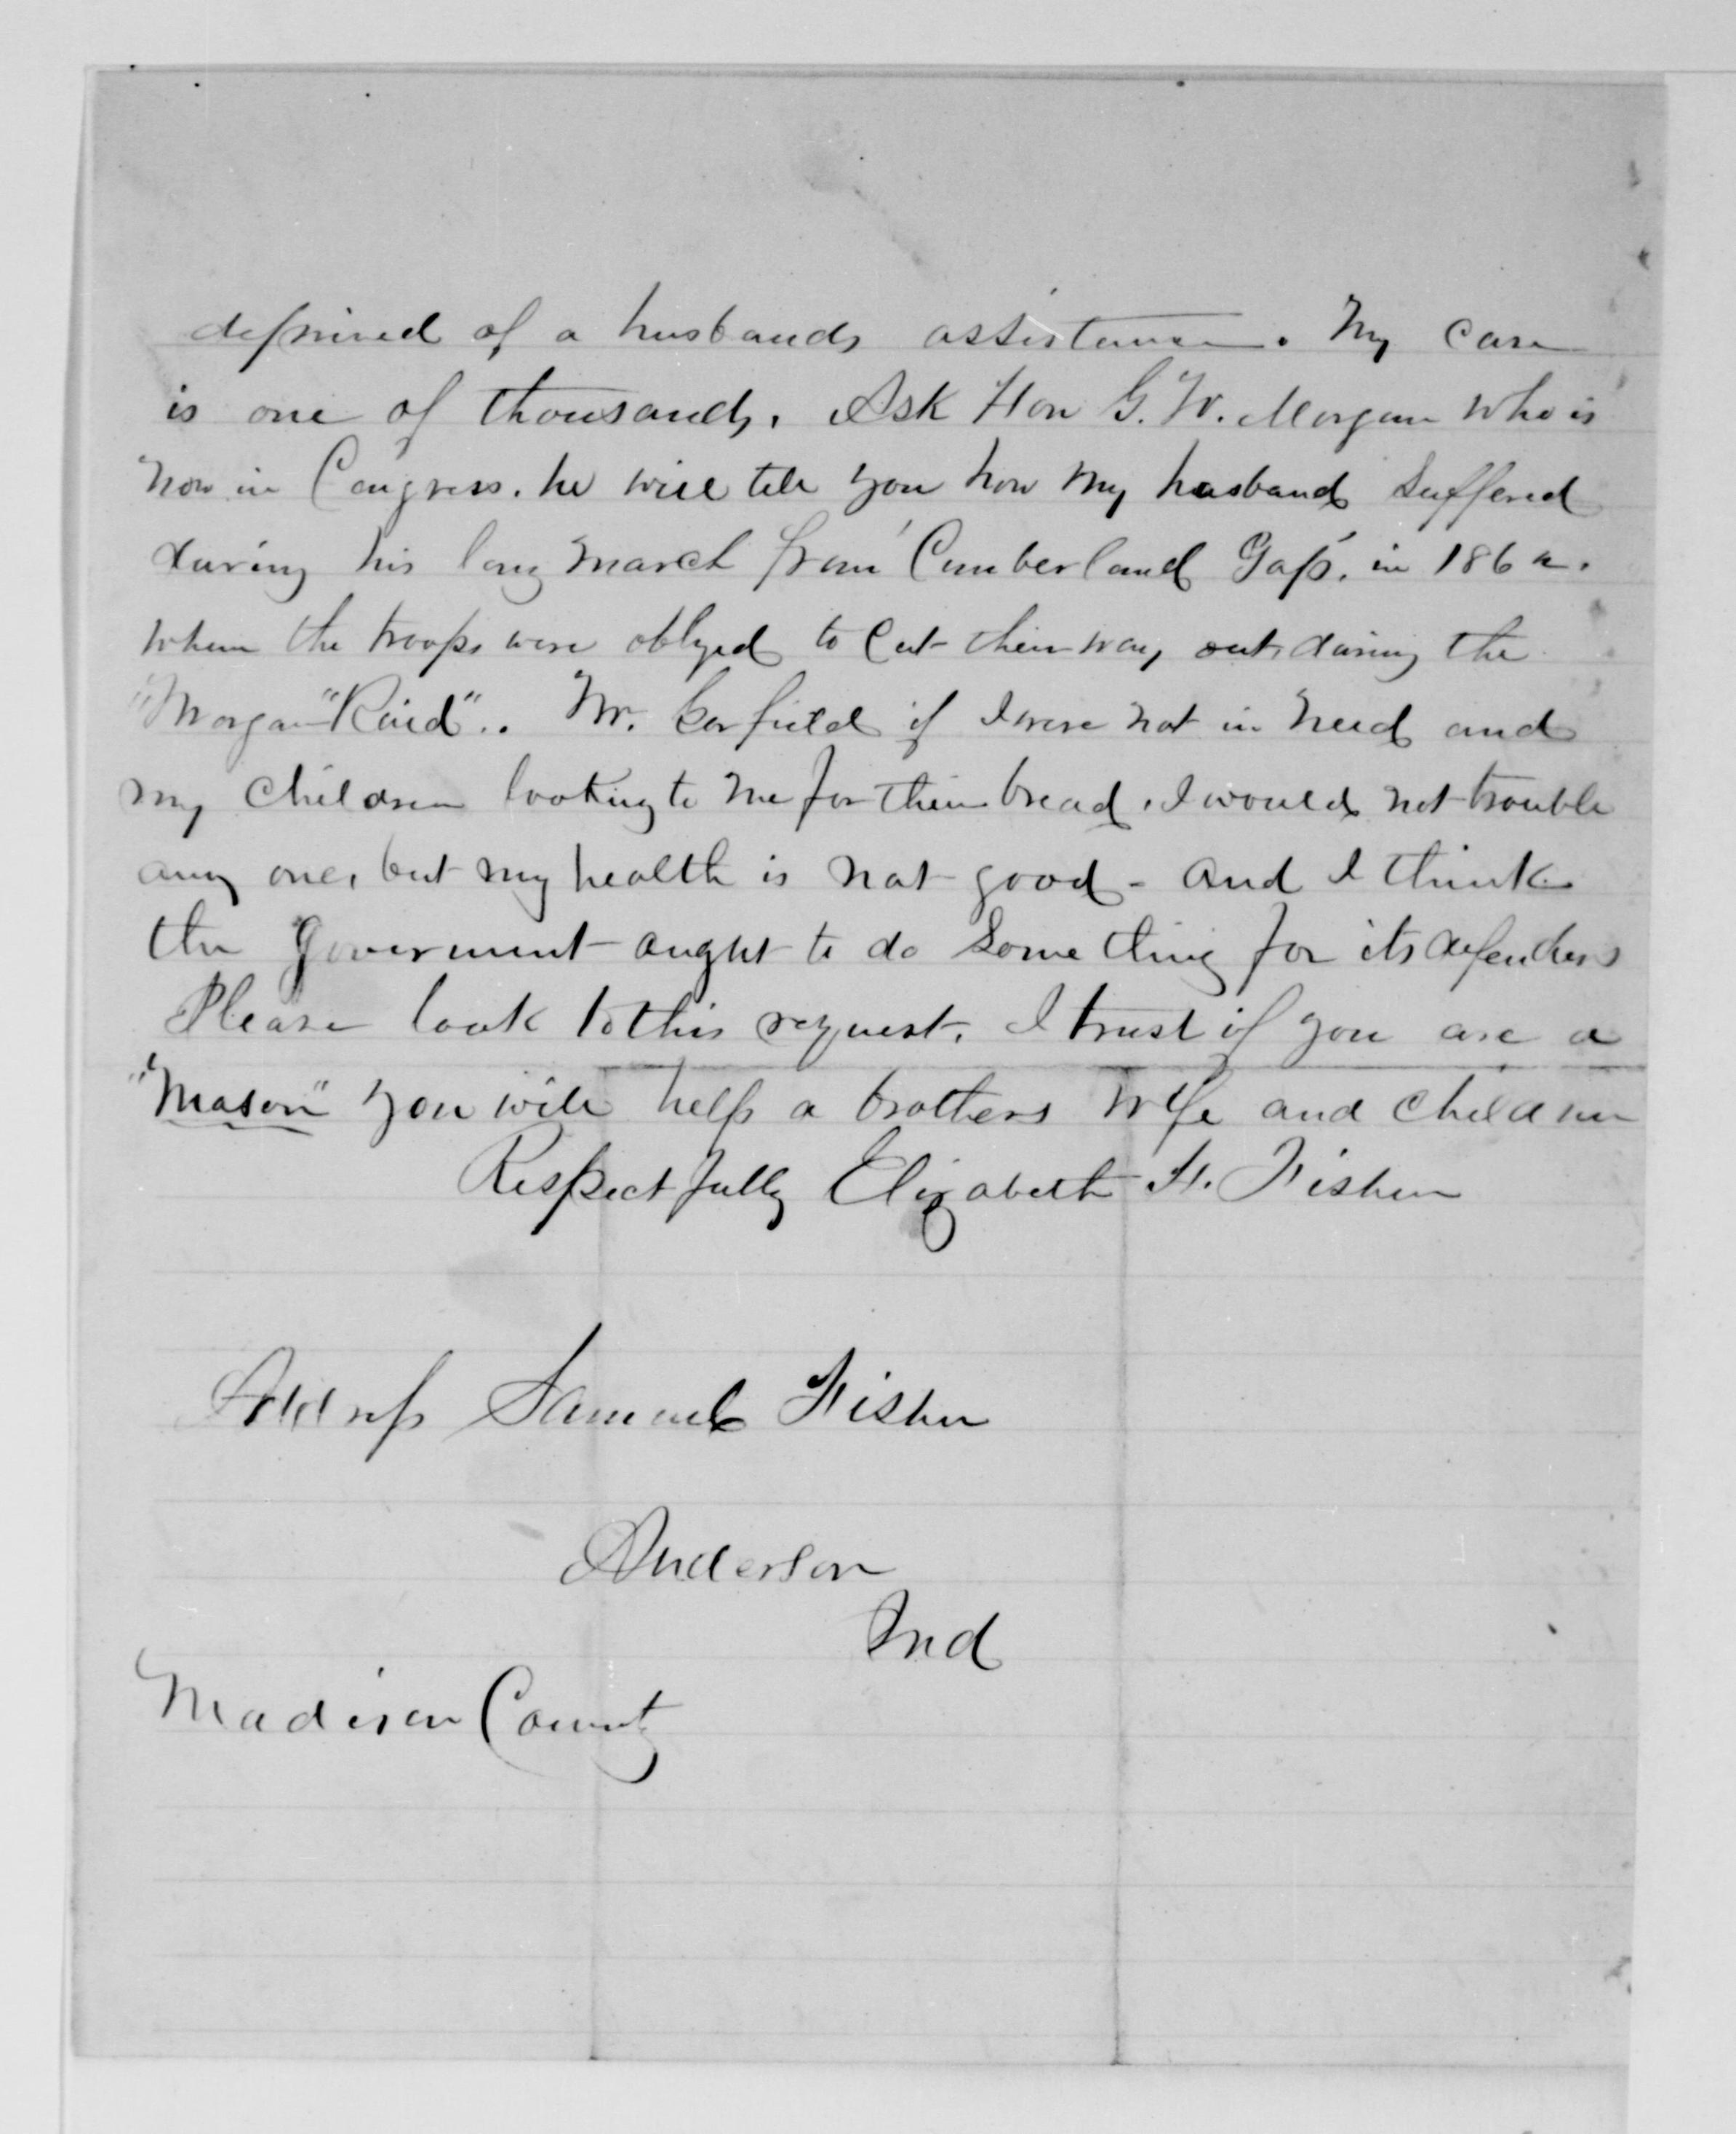 deprived of a husbands assistance. My case
is one of thousands. Ask Hon G. W. Morgan who is
now in Congress. he will tell you how my husband suffered
during his long march from "Cumberland Gap". in 1862.
when the troops were obliged to cut their way out during the
"Morgan "Raid".. Mr. Garfield if I were not in need and
my children looking to me for their bread, I would not trouble
any one, but my health is not good - and I think
the Goverment ought to do some thing for its defenders
Please look to this request. I trust if you are a
"Mason" you will help a brothers wife and children
Respectfully Elizabeth H. Fisher
Address Samuel Fisher
Anderson
Ind
Madison County